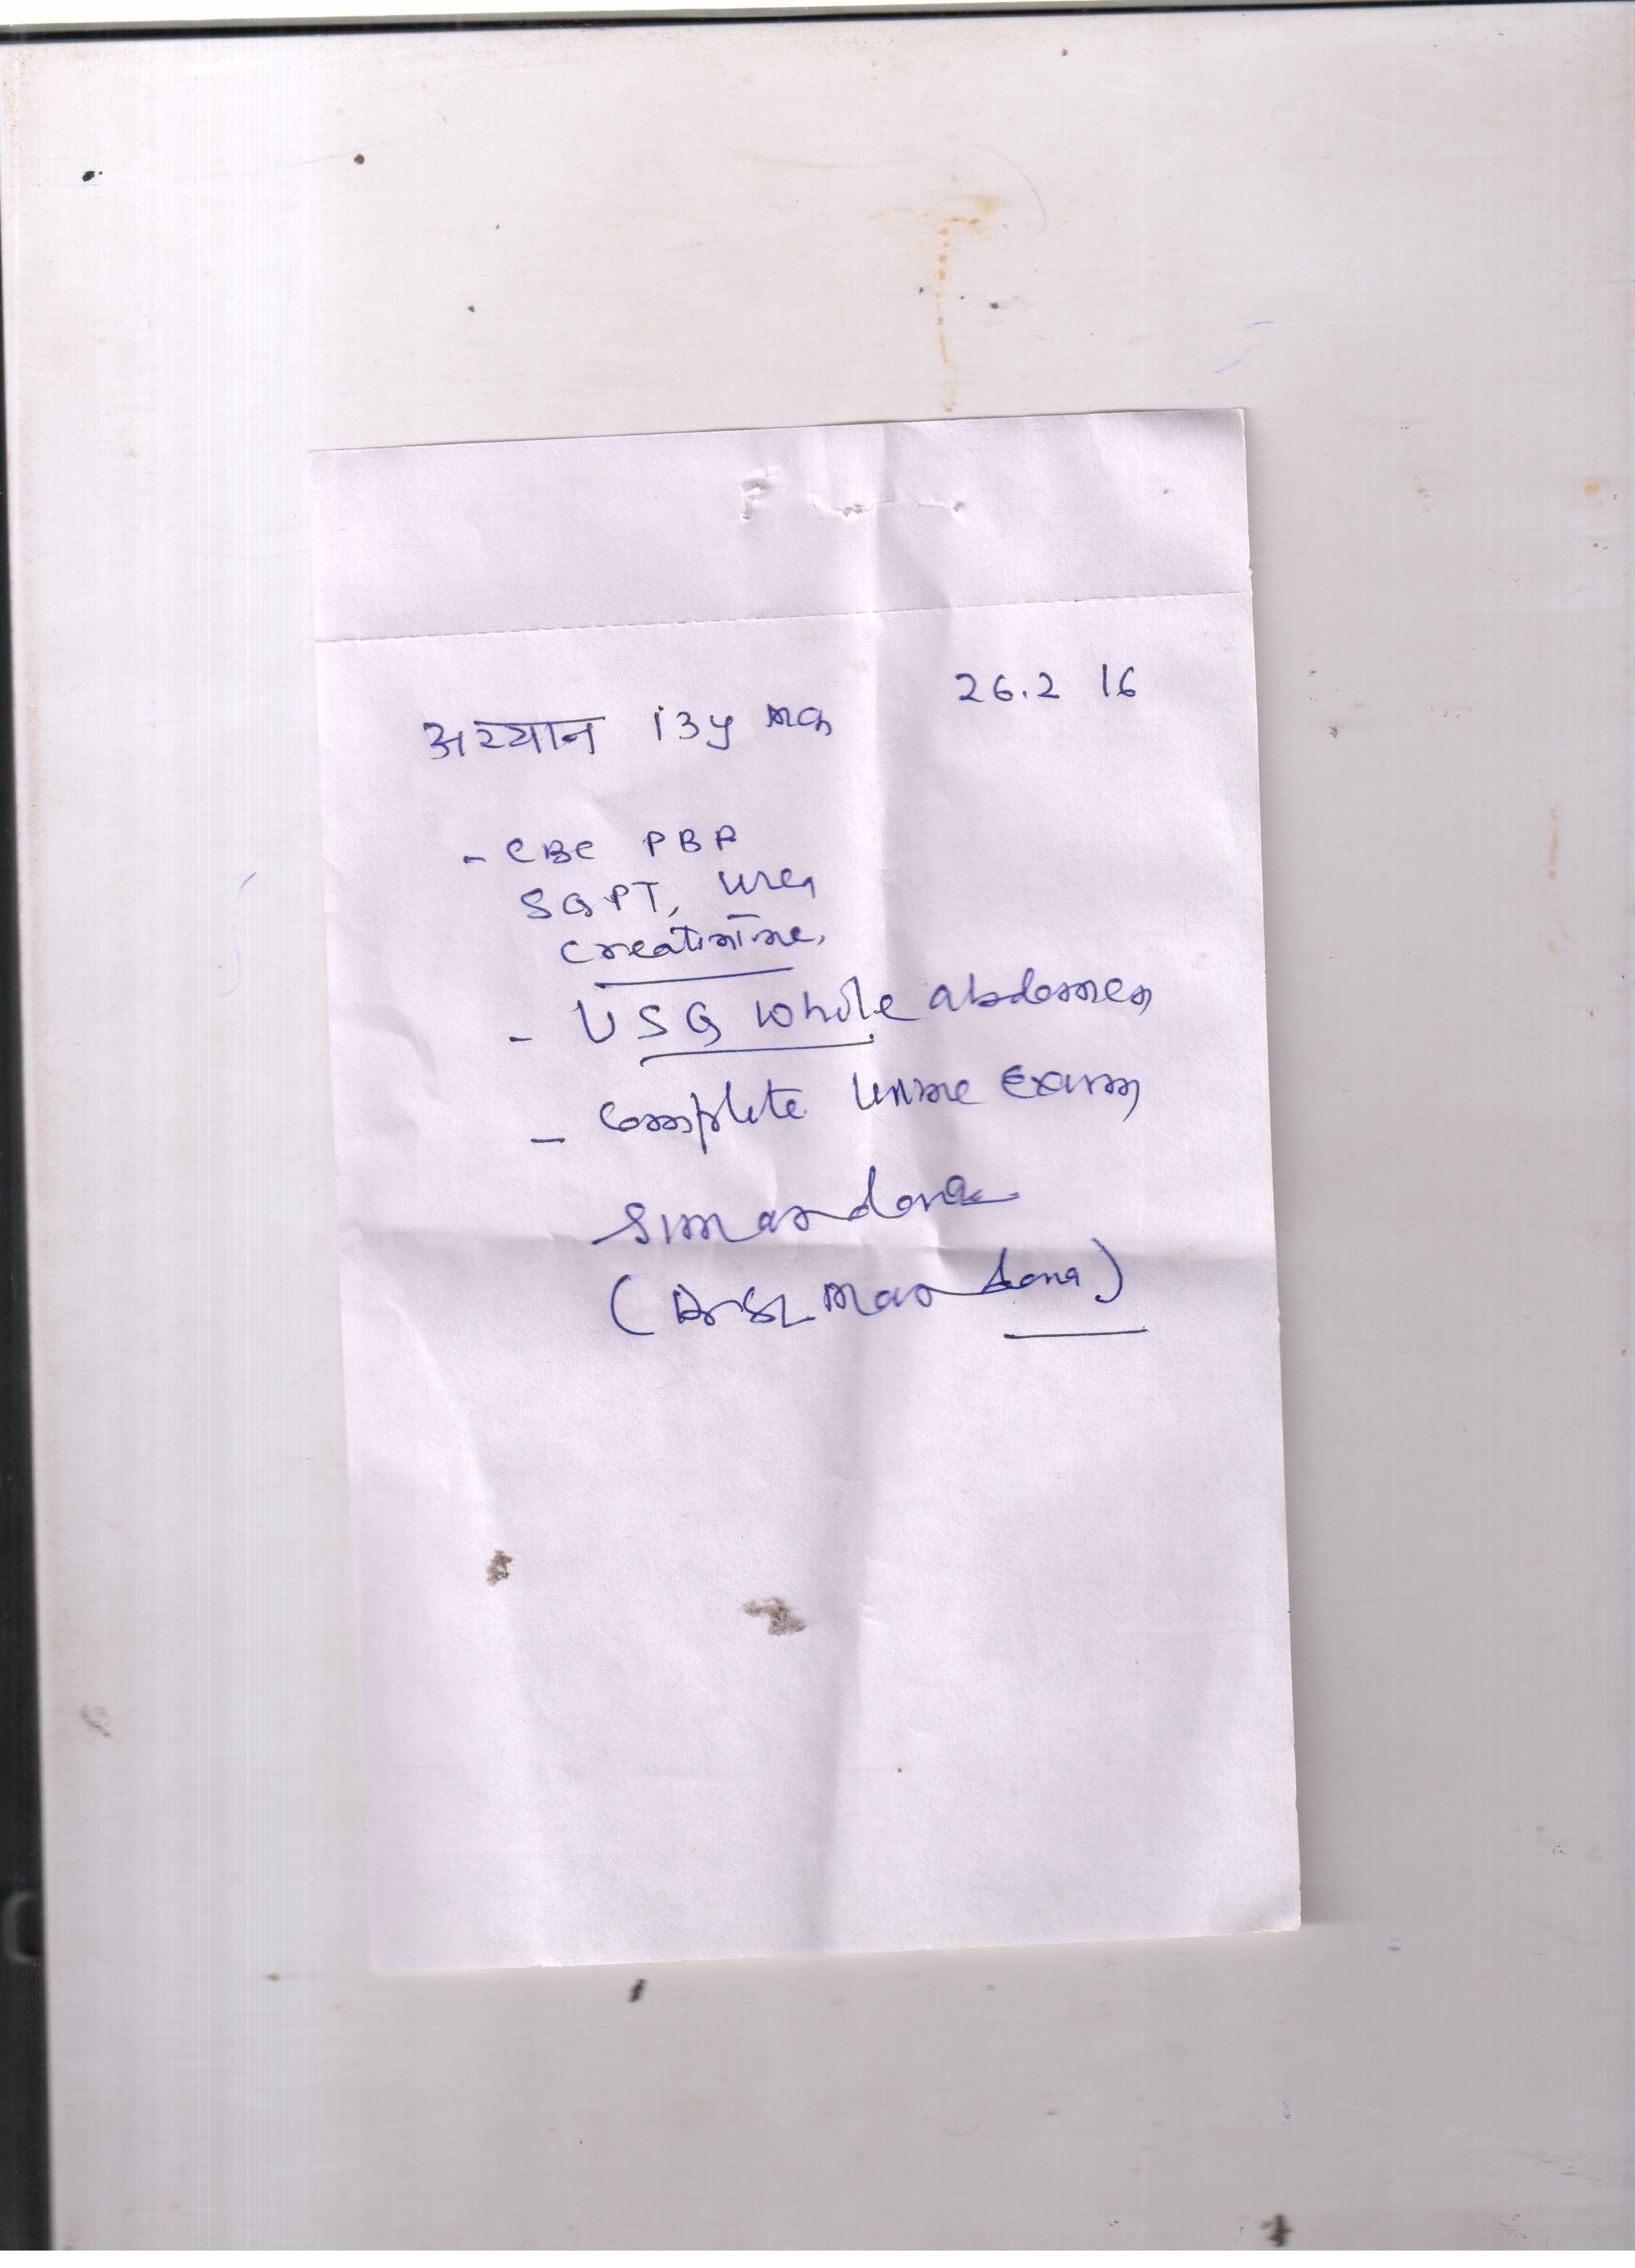 26.2 16
अरयान 13y
- CBC PBF
SGPT, Urea
Creatinine,
- USG whole abdomen
- Complete Urine Exam